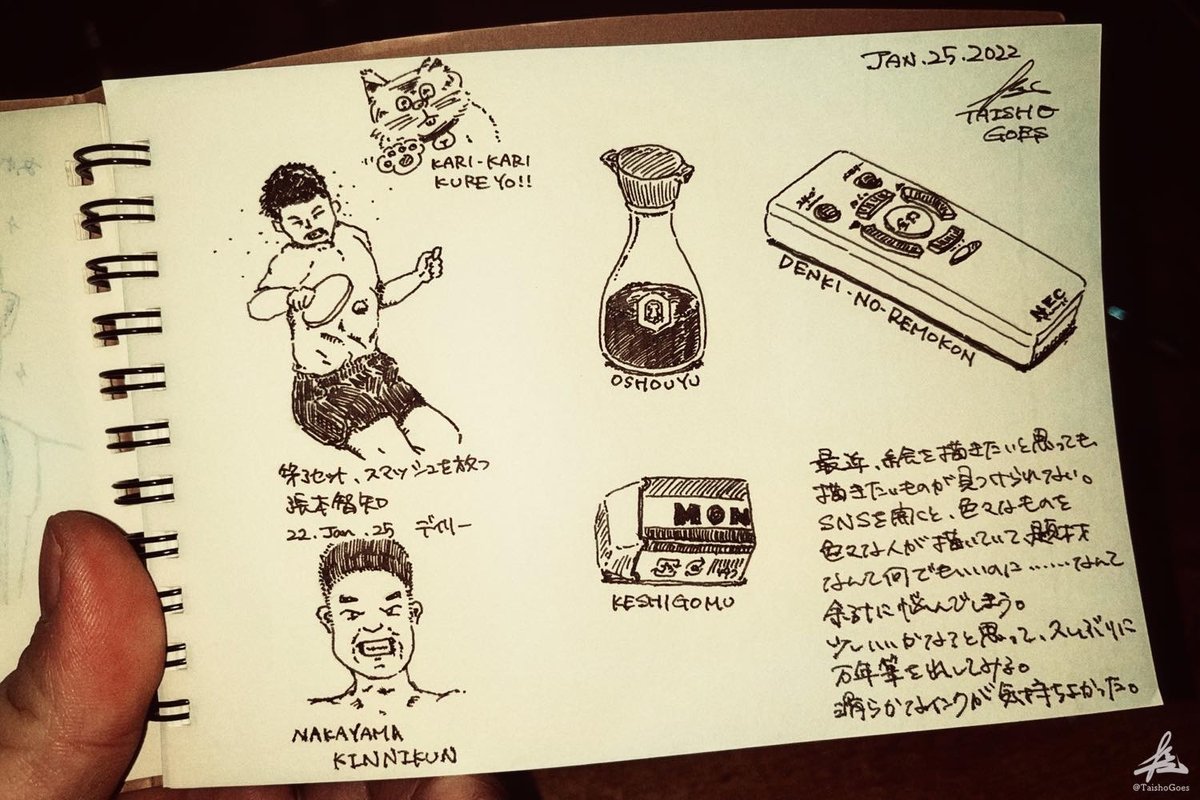 JAN.25.2022
TAISHO
GOES
KARI-KARI
KUREYO!!
第3セット、スマッシュを放つ
張本智和
22.Jan.25 デイリー
NAKAYAMA
KINNIKUN
OSHOUYU
NEC
DENKI-NO-REMOKON
MON
KESHIGOMU
最近、絵を描きたいと思っても、
描きたいものが見つけられてない。
SNSを開くと、色々なものを
色々な人が描いていて、題材
なんて何でもいいのに……なんて
余計に悩んでしまう。
少しいいかな?と思って、久しぶりに
万年筆を出してみる。
滑らかなインクが気持ちよかった。
@TaishoGoes